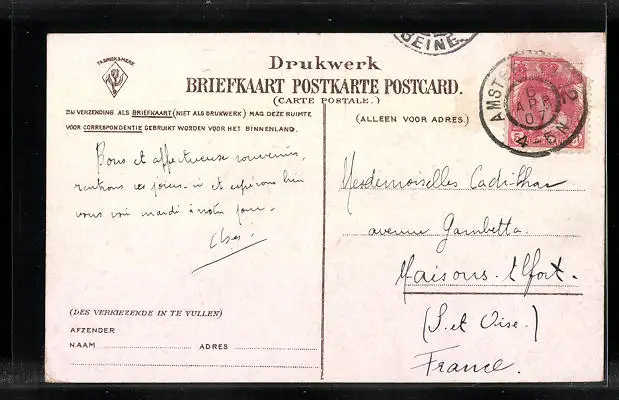 FABRIEKSMERK
Drukwerk
BRIEFKAART POSTKARTE POSTCARD.
(CARTE POSTALE.)
BIJ VERZENDING ALS BRIEFKAART (NIET ALS DRUKWERK) MAG DEZE RUIMTE
VOOR CORRESPONDENTIE GEBRUIKT WORDEN VOOR HET BINNENLAND.
(ALLEEN VOOR ADRES)
SEINE
AMST
6
APR
07
4-5 N
Bons et affectueuse souvenirs,
rentrons ces jours-ci et espérons bien
vous voir mardi à notre jour.
Mesdemoiselles
avenue Gambetta.
Maisons-Alfort.
(S. et Oise.)
France.
(DES VERKIEZENDE IN TE VULLEN)
AFZENDER
NAAM ADRES